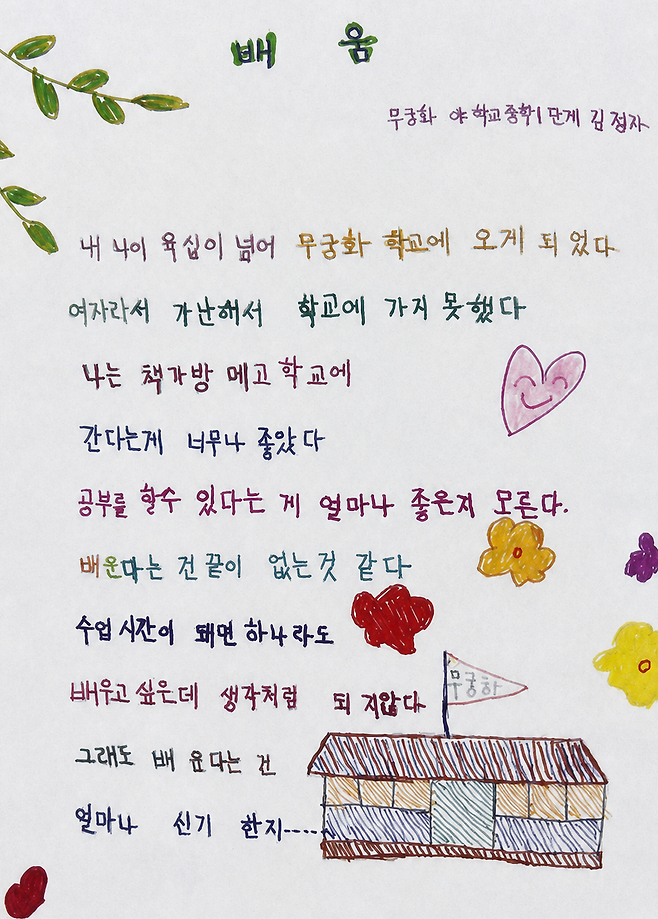 배 움
무궁화 야학교중학1단계 김정자
내 나이 육십이 넘어 무궁화 학교에 오게 되었다
여자라서 가난해서 학교에 가지 못했다
나는 책가방 메고 학교에
간다는게 너무나 좋았다
공부를 할수 있다는 게 얼마나 좋은지 모른다.
배운다는 건 끝이 없는것 같다
수업시간이 돼면 하나라도
배우고 싶은데 생각처럼 되지않다
무궁하
그래도 배운다는 건
얼마나 신기 한지-----